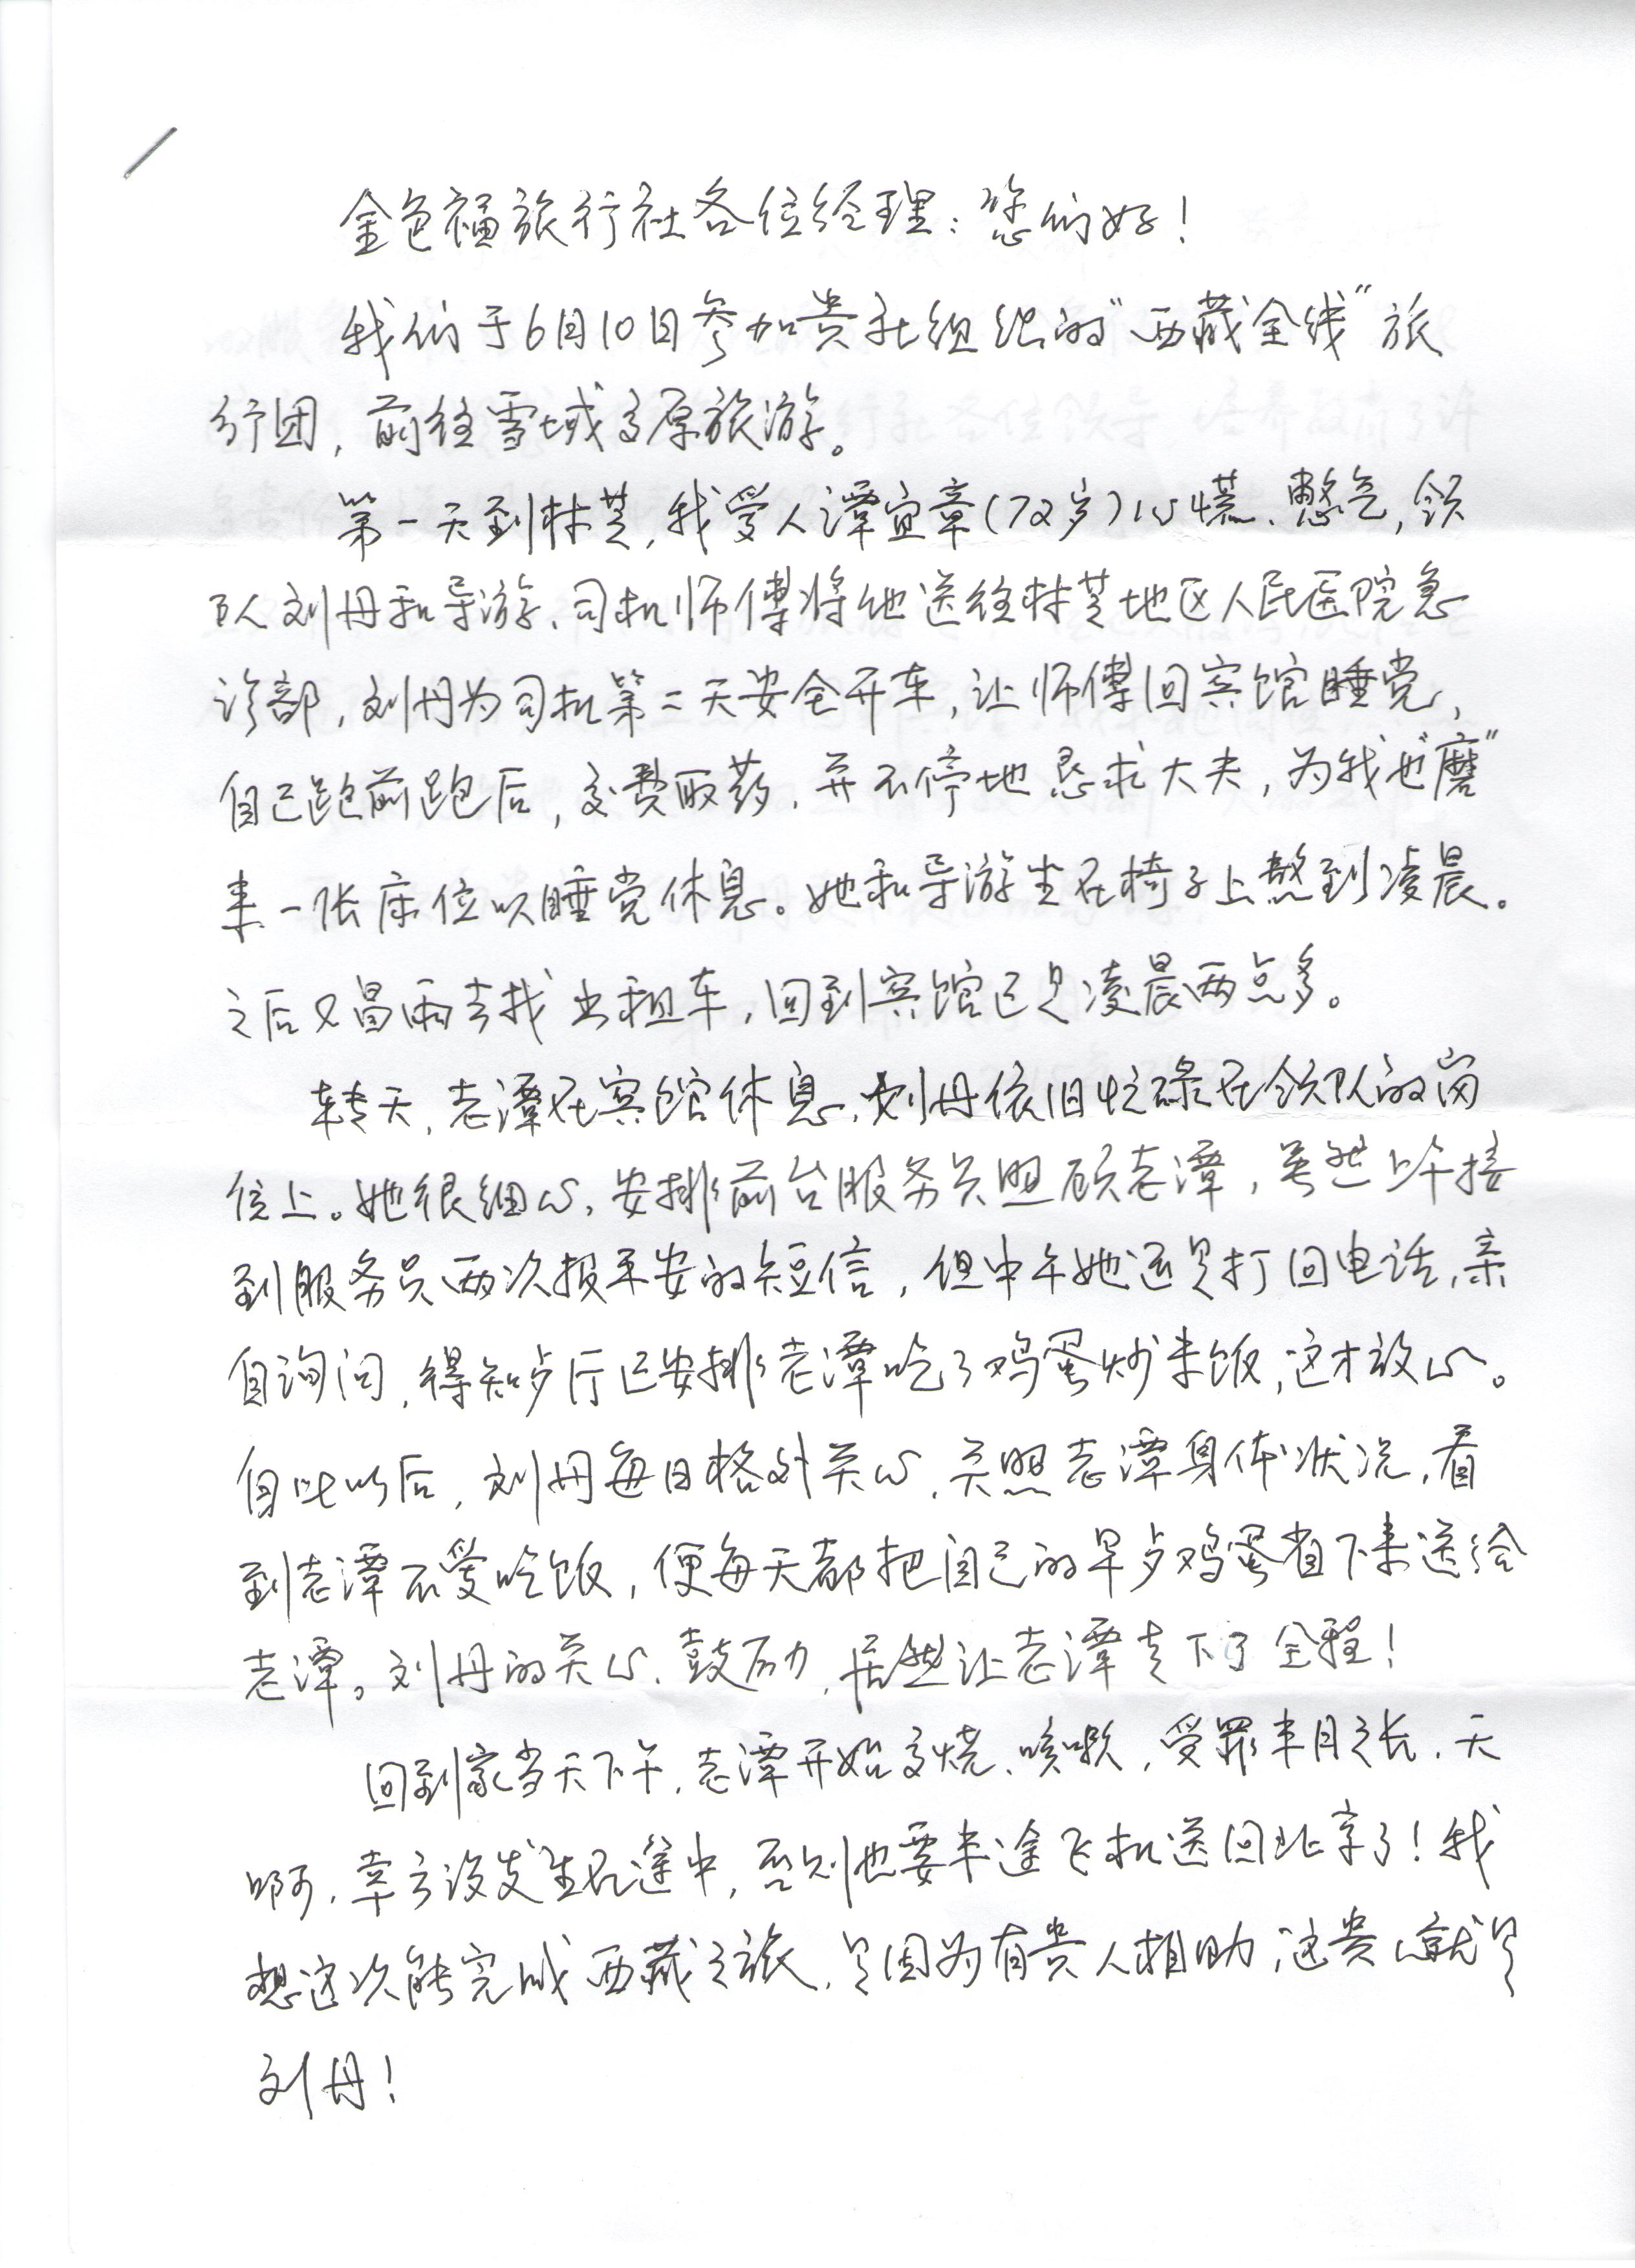 金色福旅行社各位经理：您们好！
我们于6月10日参加贵社组织的“西藏全线”旅
行团，前往雪域高原旅游。
第一天到林芝，我爱人谭宜章（72岁）心慌、憋气，领
队刘丹和导游、司机师傅将他送往林芝地区人民医院急
诊部，刘丹为司机第二天安全开车，让师傅回宾馆睡觉，
自己跑前跑后，交费取药，并不停地恳求大夫，为我也“磨”
来一张床位以睡觉休息。她和导游坐在椅子上熬到凌晨。
之后又冒雨去找出租车，回到宾馆已是凌晨两点多。
转天，老谭在宾馆休息，刘丹依旧忙碌在领队的岗
位上。她很细心，安排前台服务员照顾老谭，虽然上午接
到服务员两次报平安的短信，但中午她还是打回电话，亲
自询问，得知歺厅已安排老谭吃了鸡蛋炒米饭，这才放心。
自此以后，刘丹每日格外关心、关照老谭身体状况，看
到老谭不爱吃饭，便每天都把自己的早歺鸡蛋省下来送给
老谭。刘丹的关心、鼓励，居然让老谭走下了全程！
回到家当天下午，老谭开始高烧、咳嗽，受罪半月之长，天
啊，幸亏没发生在途中，否则也要半途飞机送回北京了！我
想这次能完成西藏之旅，是因为有贵人相助，这贵人就是
刘丹！